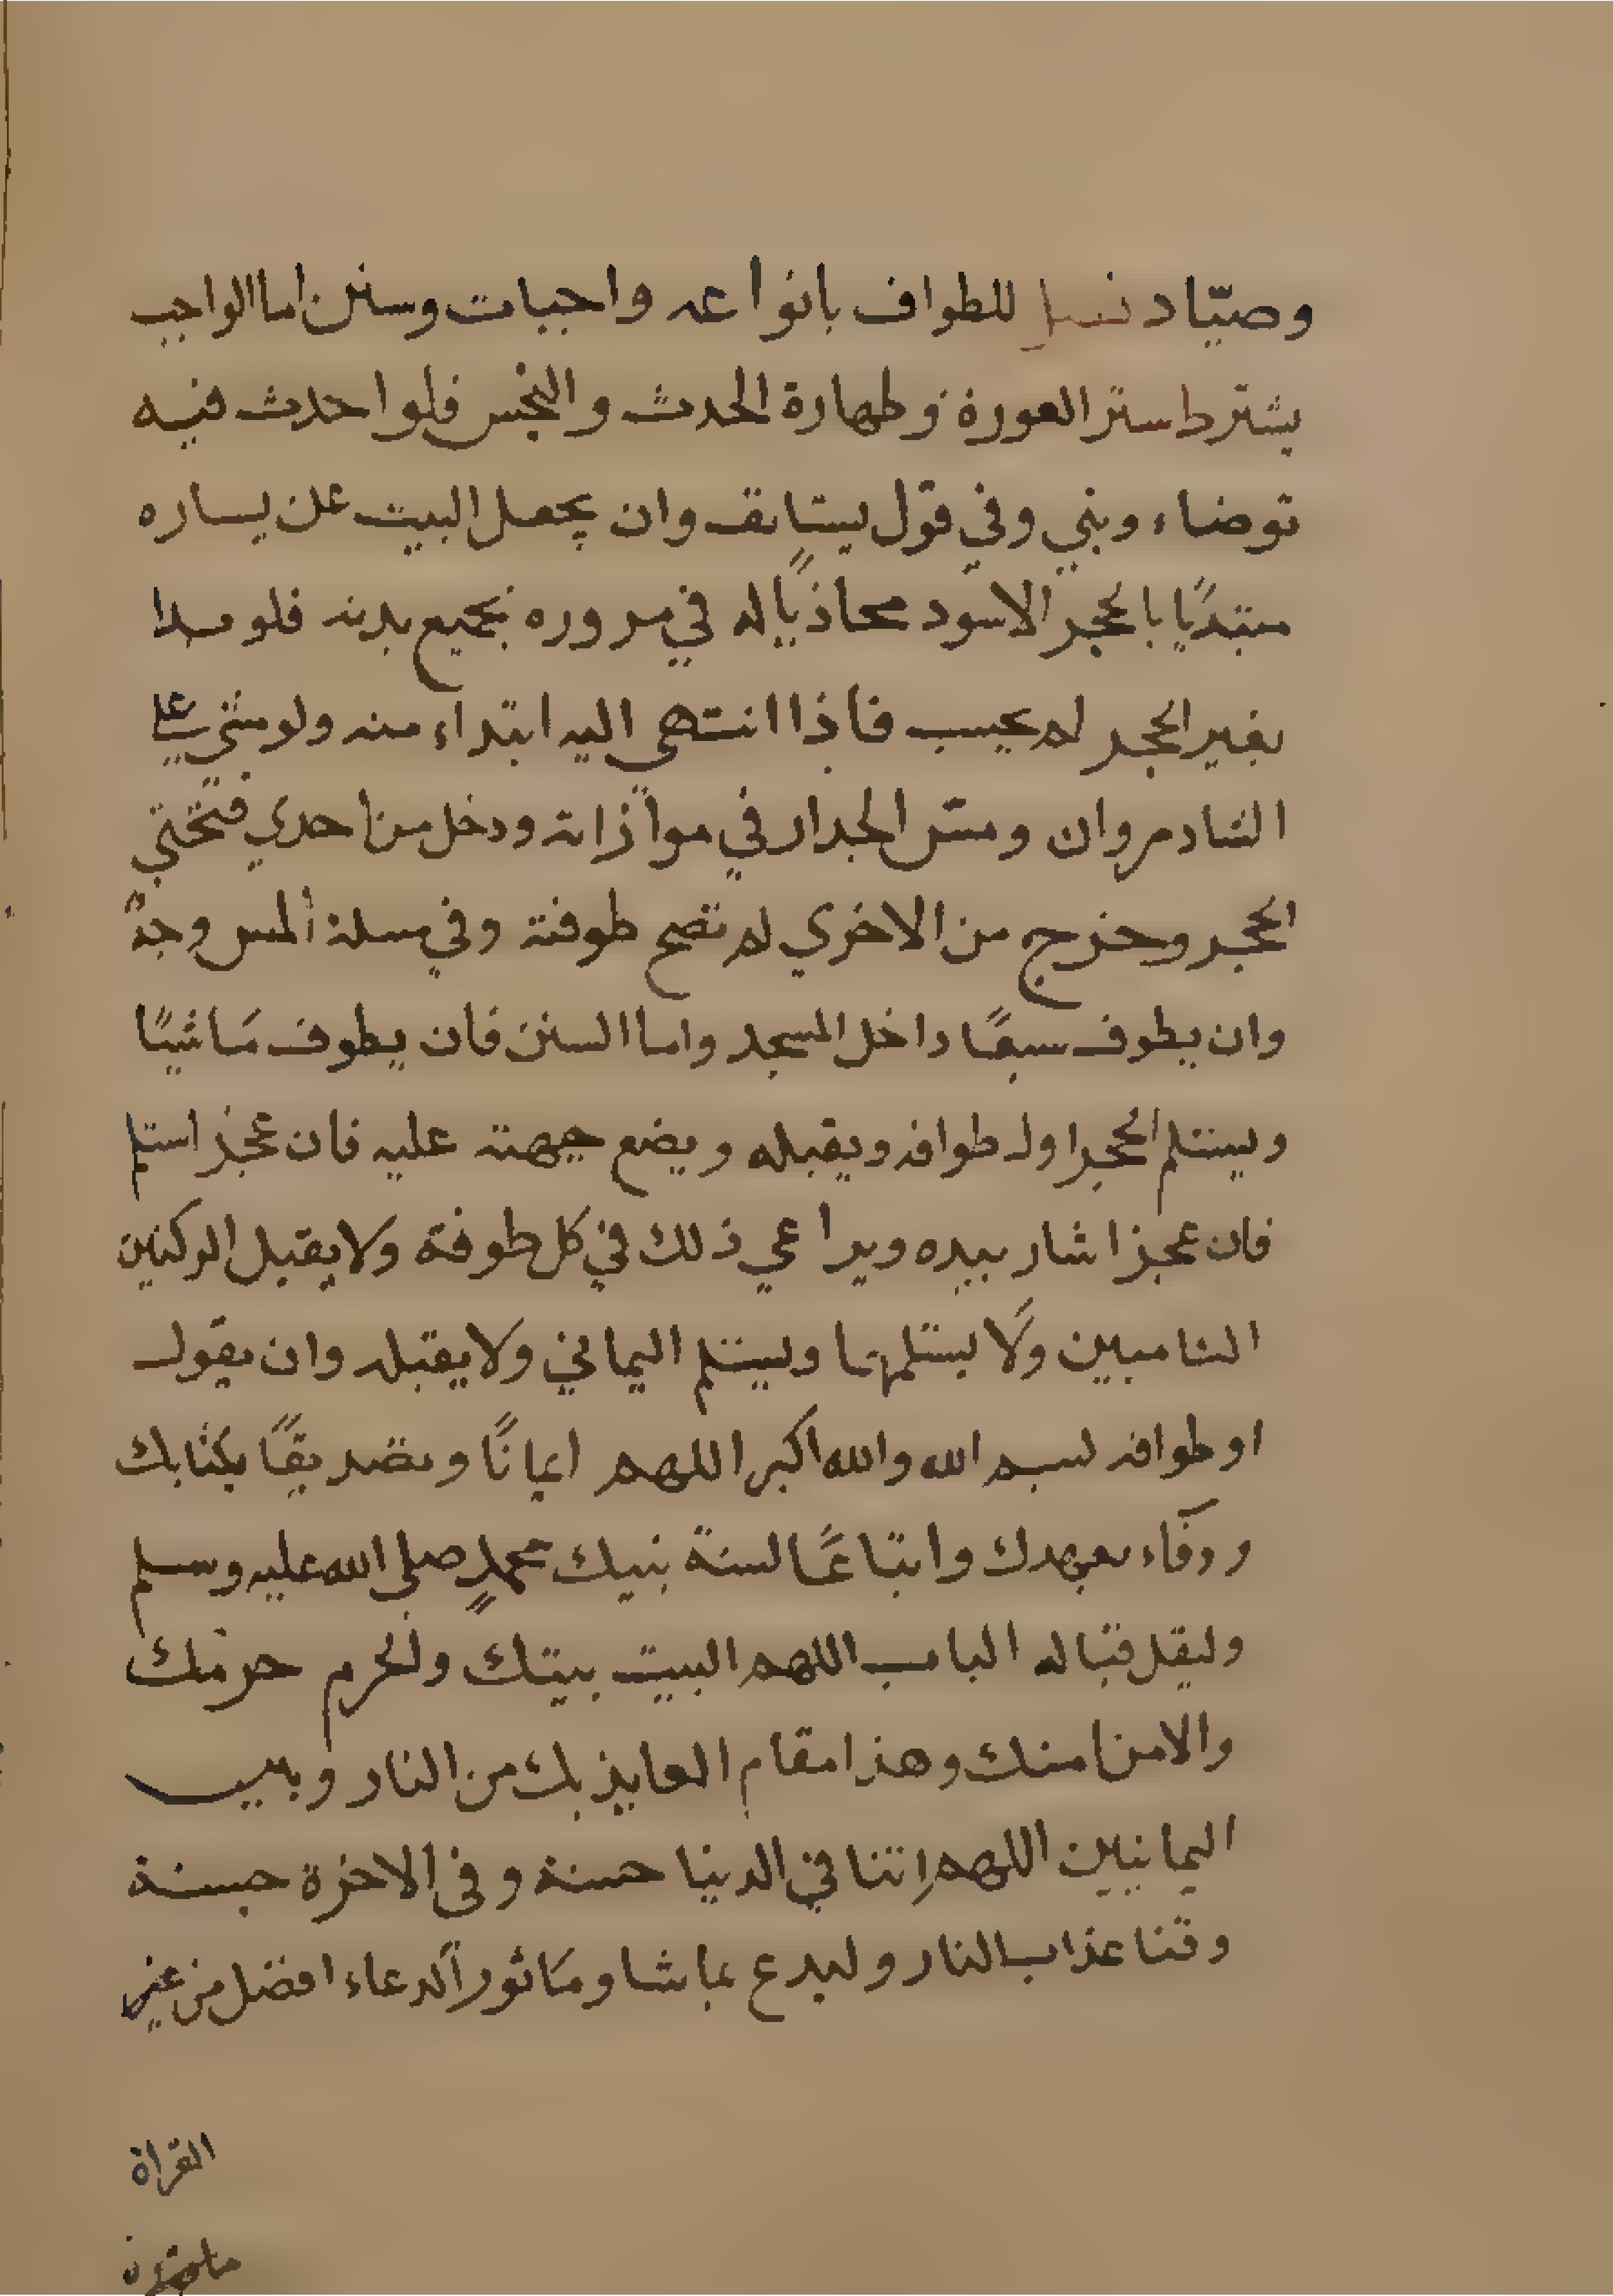 وصيّاد فصل للطواف بانواعه واجبات وسنن اما الواجب
يشترط ستر العورة وطهارة الحدث والنجس فلو احدث فيه
توضاء وبني وفي قول يستانف وان يجعل البيت عن يساره
مبتديًا بالحجر الاسود محاذيًا له في مروره بجميع بدنه فلو بدا
بغير الحجر لم يحسب فاذا انتهى اليه ابتداء منه ولو مشي على
الشادروان ومسّ الجدار في موازاته ودخل من احدي فتحتي
الحجر وخرج من الاخري لم تصح طوفته وفي مسلة المس وجهٌ
وان يطوف سبعًا داخل المسجد واما السنن فان يطوف مَاشيًا
ويستلم الحجر اول طوافه ويقبله ويضع جبهته عليه فان عجز استلم
فان عجز اشار بيده ويراعي ذلك في كل طوفة ولا يقبل الركنين
الشاميين ولَا يستلمهما ويستلم اليماني ولا يقبله وان يقول
او طوافه بسم الله والله اكبر اللهم ايمانًا وتصديقًا بكتابك
ووفآء بعهدك واتباعًا لسنة نبيك محمدٍ صلى الله عليه وسلم
وليقل قبالة الباب اللهم البيت بيتك ولحرم حرمك
والامن امنك وهذا مقام العايذ بك من النار وبين
اليمانيين اللهم اتنا في الدنيا حسنة وفى الاخرة حسنة
وقنا عذاب النار وليدع بماشا ومَاثور الدعاء افضل من غير
القراة